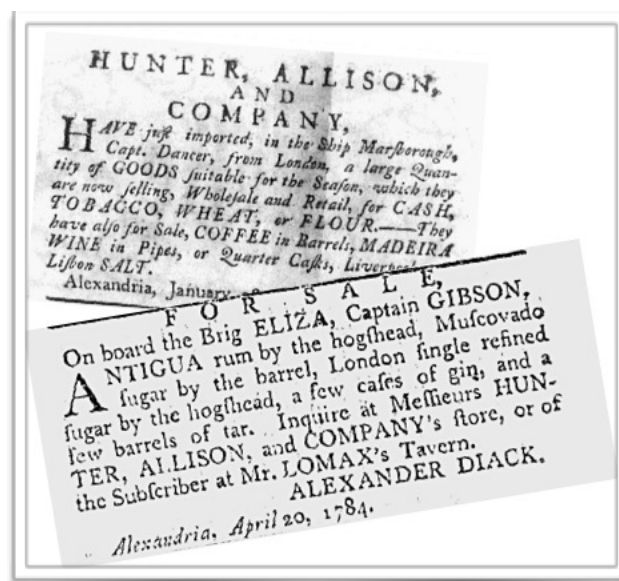 HUNTER, ALLISON,
AND
COMPANY,
HAVE juſt imported, in the Ship Marlborough,
Capt. Dancer, from London, a large Quan-
tity of GOODS ſuitable for the Seaſon, which they
are now ſelling, Wholeſale and Retail, for CASH,
TOBACCO, WHEAT, or FLOUR.——They
have alſo for Sale, COFFEE in Barrels, MADEIRA
WINE in Pipes, or Quarter Caſks,
Liſbon SALT.
Alexandria, January
FOR SALE,
On board the Brig ELIZA, Captain GIBSON,
ANTIGUA rum by the hogſhead, Muſcovado
ſugar by the barrel, London ſingle refined
ſugar by the hogſhead, a few caſes of gin, and a
few barrels of tar. Inquire at Meſſieurs HUN-
TER, ALLISON, and COMPANY's ſtore, or of
the Subſcriber at Mr. LOMAX's Tavern.
ALEXANDER DIACK.
Alexandria, April 20, 1784.